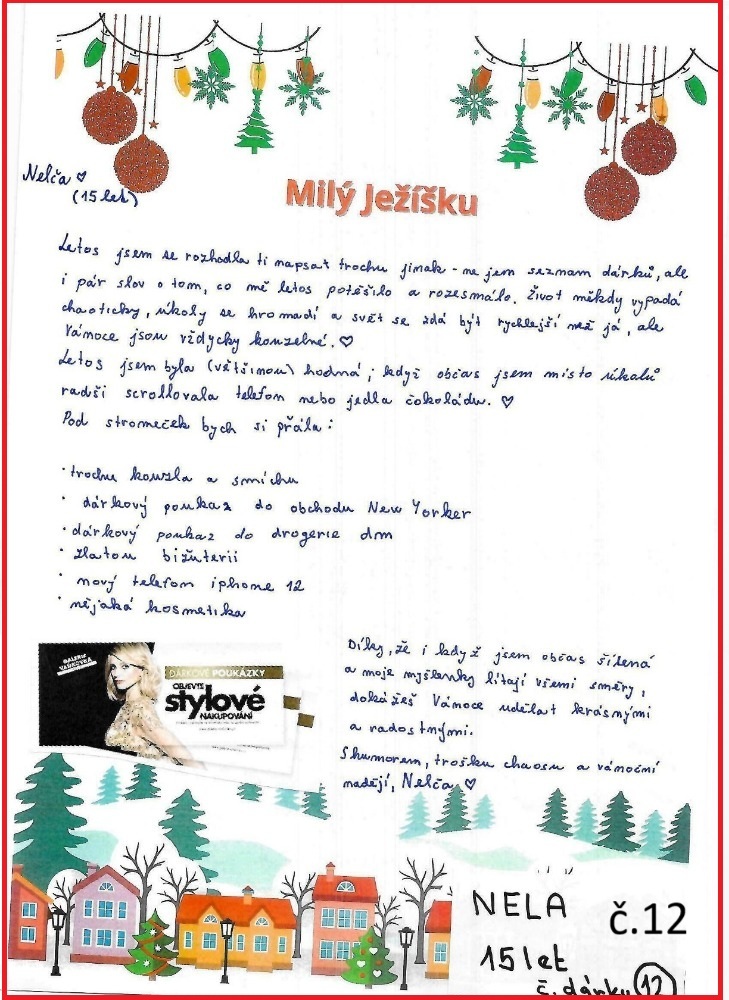 Nelča ♡
(15 let)
Milý Ježíšku
Letos jsem se rozhodla ti napsat trochu jinak - ne jen seznam dárků, ale
i pár slov o tom, co mě letos potěšilo a rozesmálo. Život někdy vypadá
chaoticky, úkoly se hromadí a svět se zdá být rychlejší než já, ale
Vánoce jsou vždycky kouzelné. ♡
Letos jsem byla (většinou) hodná, i když občas jsem místo úkolů
radši scrollovala telefon nebo jedla čokoládu. ♡
Pod stromeček bych si přála:
• trochu kouzla a smíchu
• dárkový poukaz do obchodu New Yorker
• dárkový poukaz do drogerie dm
• zlatou bižuterii
• nový telefon iphone 12
• nějaká kosmetika
GALERIE
VAŇKOVKA
DÁRKOVÉ POUKÁZKY
OBJEVTE
stylové
NAKUPOVÁNÍ
Díky, že i když jsem občas šílená
a moje myšlenky lítají všemi směry,
dokážeš Vánoce udělat krásnými
a radostnými.
S humorem, troškou chaosu a vánoční
nadějí, Nelča ♡
NELA
č.12
15 let
č. dárku 12